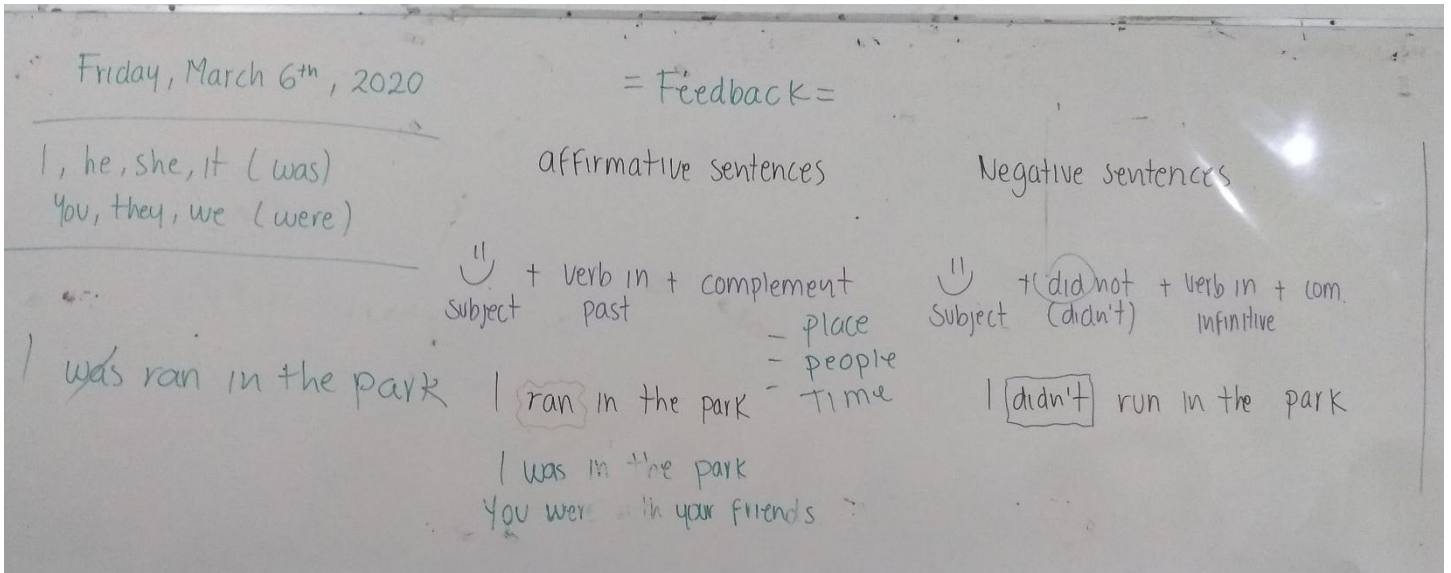 Friday, March 6th, 2020
I, he, she, it (was)
You, they, we (were)
I was ran in the park
= Feedback =
affirmative sentences
subject + verb in past + complement
- place
- people
- Time
I ran in the park
I was in the park
You wer in your friends
Negative sentences
Subject + did not (didn't) + verb in infinitive + com.
I didn't run in the park